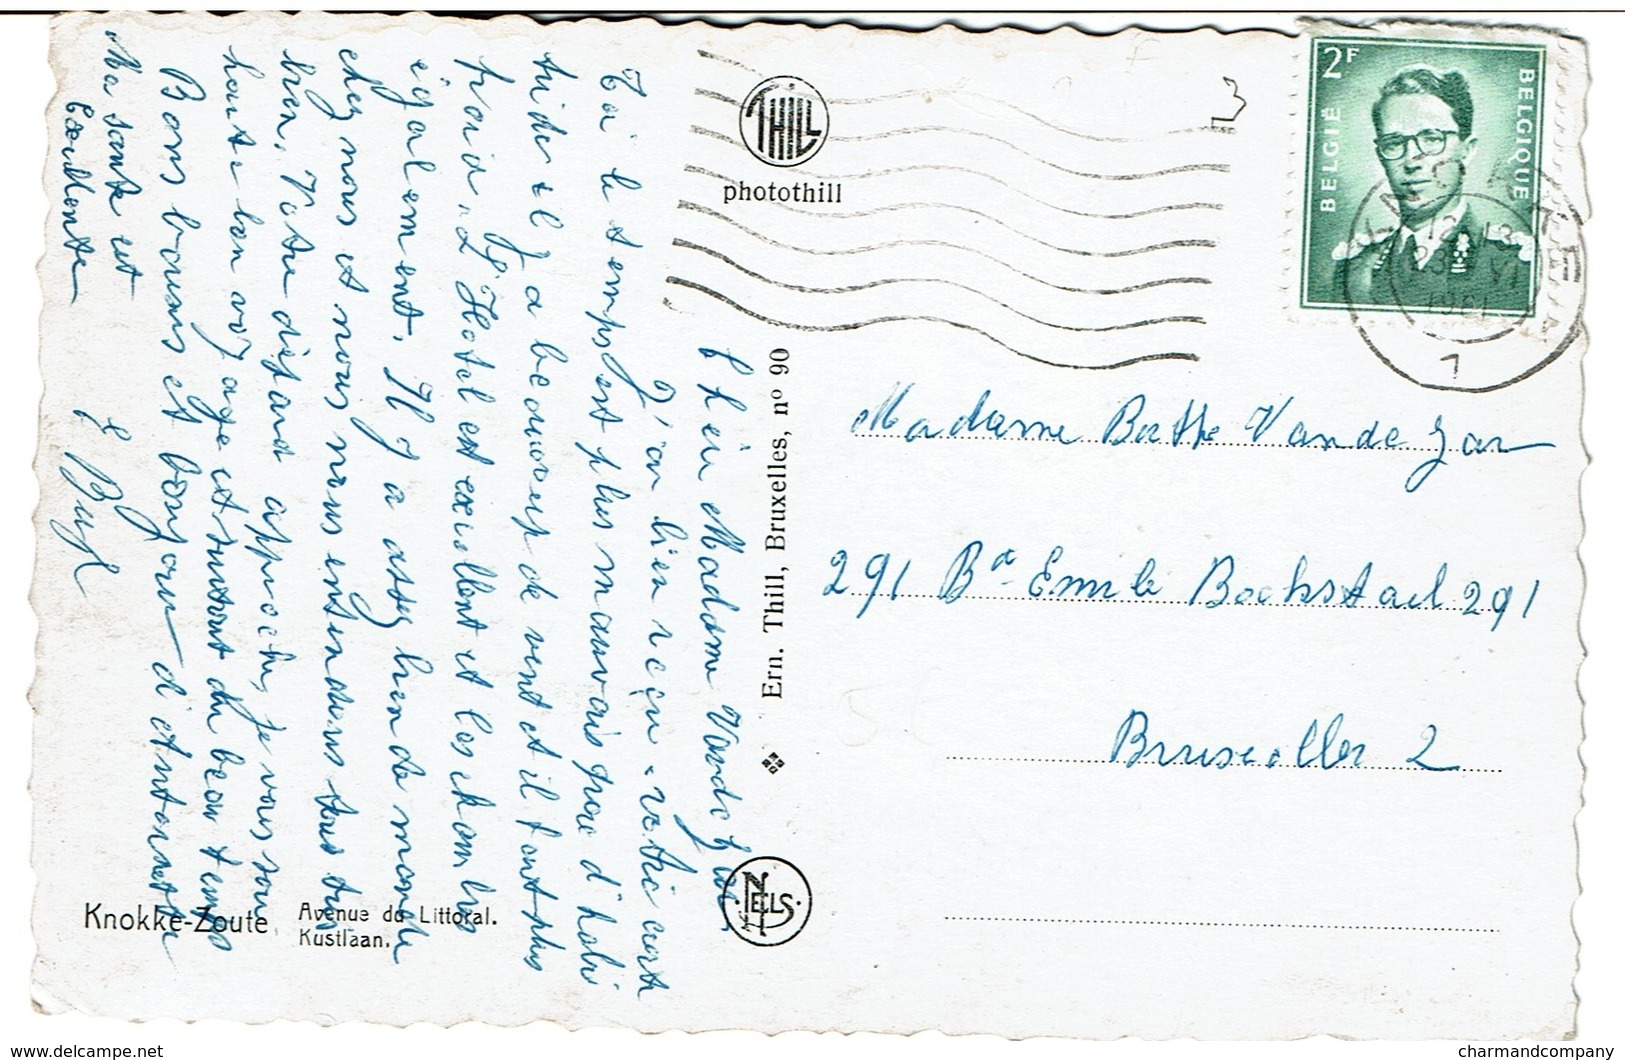 2F
BELGIË
BELGIQUE
KNOKKE
12-13
VI
1961
1
THILL
photothill
Ern. Thill, Bruxelles, nº 90
NELS
Chèr Madame Vande
J'ai bien reçu votre cart
Ici le temps est plus mauvais que d'habi
tude il y a beaucoup de vent et il fait plus
froid. L'Hotel est excellent et les chambres
également. Il y a assez bien de monde
chez nous et nous nous entendons tous très
bien. Votre départ approche, je vous sou
haite bon voyage et surtout du beau temps
Bons baisers et bonjour d'Antoinette
Ma santé est
Excellente
Madame Berthe Vande
291 Bd Emile Bockstael 291
Bruxelles 2
Knokke-Zoute
Avenue du Littoral.
Kustlaan.
delcampe.net
charmandcompany